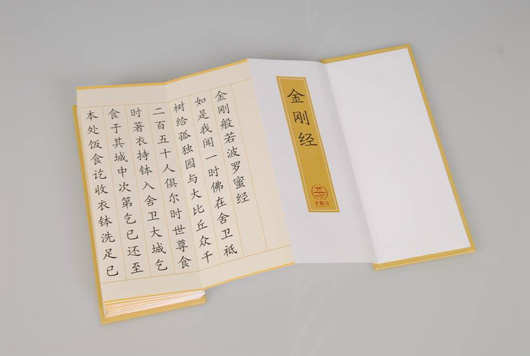 金刚经
金刚般若波罗蜜经
如是我闻一时佛在舍卫祇
树给孤独园与大比丘众千
二百五十人俱尔时世尊食
时著衣持钵入舍卫大城乞
食于其城中次第乞已还至
本处饭食讫收衣钵洗足已